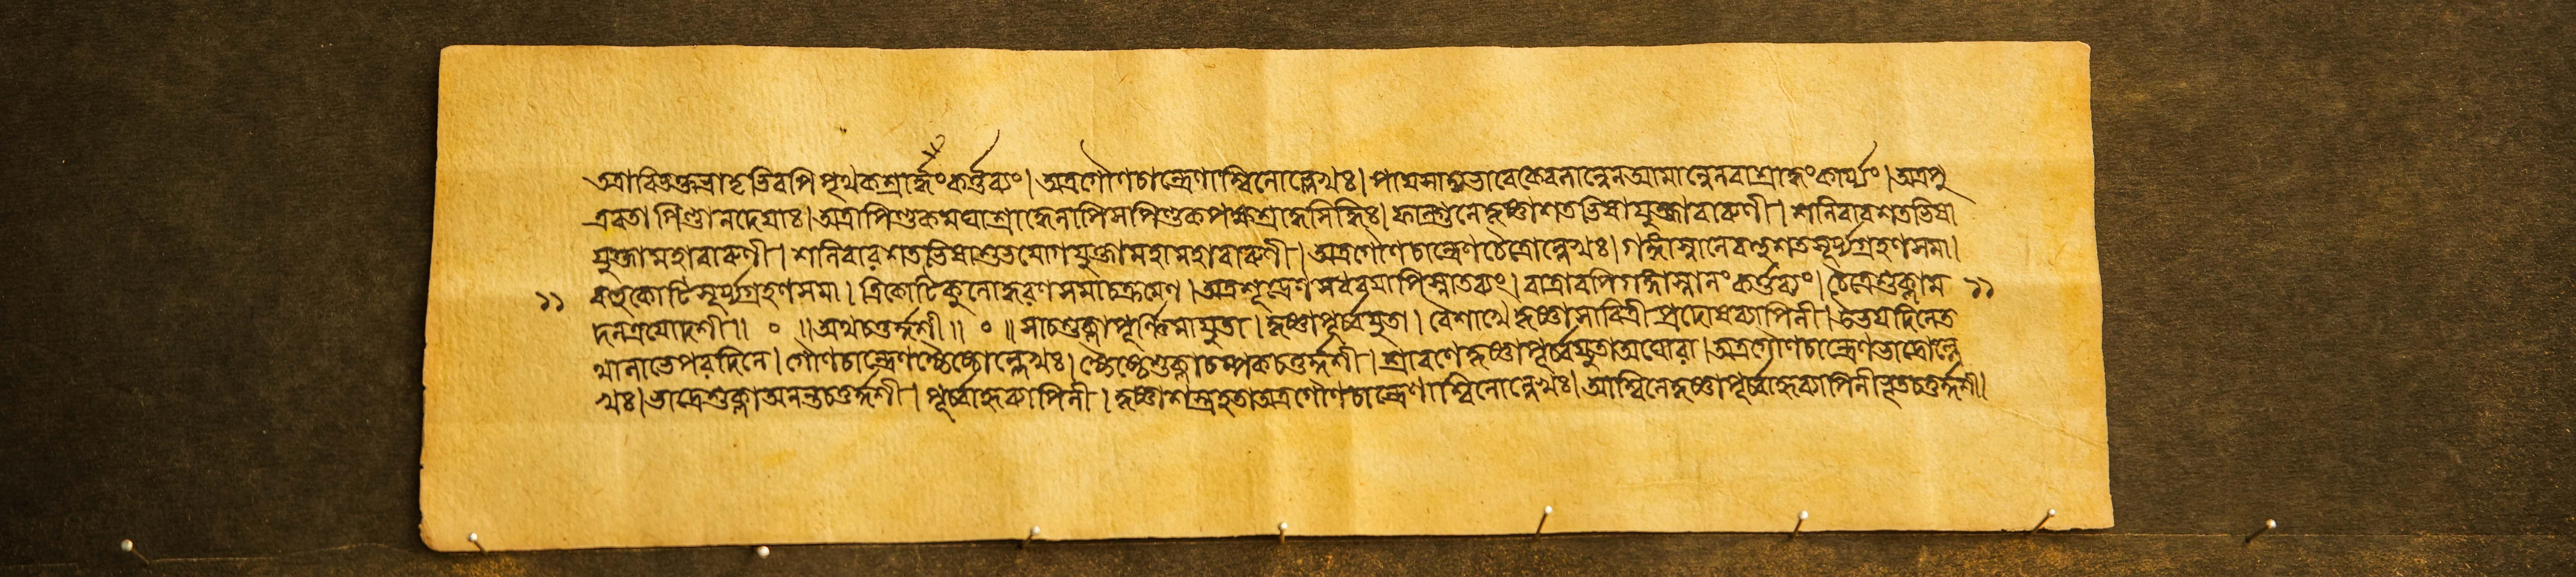 অত্রাবিভক্তভ্রাতৃভিরপি পৃথকশ্রার্দ্ধংকর্ত্তব্যং।অত্রগৌণচান্দ্রেণাশ্বিনোল্লেখঃ। কেবলান্নেনআমান্নেনবাশ্রাদ্ধংকার্য্যং।অত্রপু
ত্রবতা পিণ্ডানদেয়াঃ।অত্রাপিণ্ডকমঘাশ্রাদ্ধেনাপিসপিণ্ডকপক্ষশ্রাদ্ধসিদ্ধিঃ।ফাল্গুনেকৃষ্ণাশতভিষাযুক্তাবারুণী। শনিবারশতভিষা
যুক্তামহাবারুণী। শনিবারশতভিষাশুভযোগযুক্তামহামহাবারুণী।অত্রগৌণচান্দ্রেণচৈত্রোল্লেখঃ।গঙ্গাস্নানেবহুশতসূর্য্যগ্রহণসমা।
১১ বহুকোটিসূর্য্যগ্রহণসমা। ত্রিকোটিকুলোদ্ধরণসমাচক্রমেণ।অত্রশূদ্রেণ স্নাতব্যং।রাত্রাবপিগঙ্গাস্নানংকর্ত্তব্যং।চৈত্রেশুক্লাম ১১
দনত্রয়োদশী॥ ০ ॥অথচতুর্দ্দশী॥ ০ ॥সাচশুক্লাপূর্ণিমাযুতা।কৃষ্ণাপূর্ব্বযুতা। বৈশাখেকৃষ্ণাসাবিত্রীপ্রদোষব্যাপিনী।উভয়দিনেত
থালাভেপরদিনে। গৌণচান্দ্রেণজ্যৈষ্ঠোল্লেখঃ। জ্যৈষ্ঠেশুক্লাচম্পকচতুর্দ্দশী।শ্রাবণেকৃষ্ণাপূর্ব্বযুতাঅঘোরা।অত্রগৌণচান্দ্রেণভাদ্রোল্লে
খঃ।ভাদ্রেশুক্লাঅনন্তচতুর্দ্দশী। পূর্ব্বাহ্নব্যাপিনী। কৃষ্ণাশস্ত্রহতাঅত্রগৌণচান্দ্রেণাশ্বিনোল্লেখঃ।আশ্বিনেকৃষ্ণাপূর্ব্বাহ্নব্যাপিনীভূতচতুর্দ্দশী।